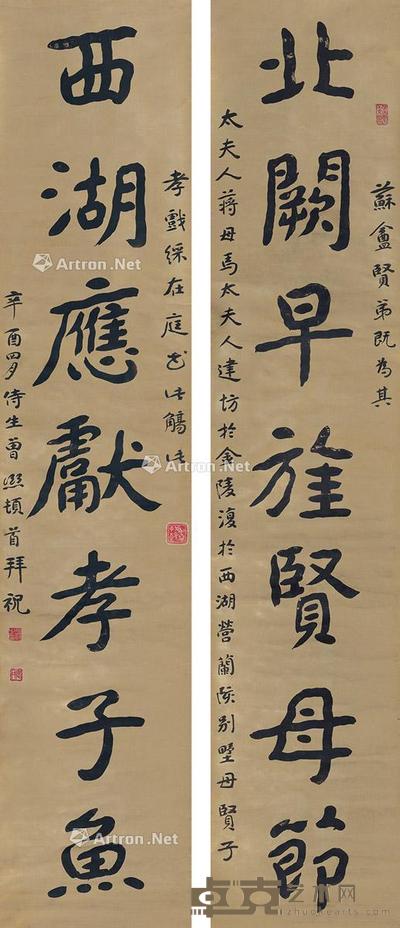 北闕早旌賢母節
蘇盦賢弟既為其
太夫人蔣母馬太夫人建坊於金陵復於西湖營蘭陔別墅母賢子
西湖應獻孝子魚
孝戲綵在庭 此觴
辛酉四月侍生曾熙頓首拜祝
Artron.Net
Artron.Net
Artron.Net
Artron.Net
Artron.Net
Artron.Net
卓克艺术网